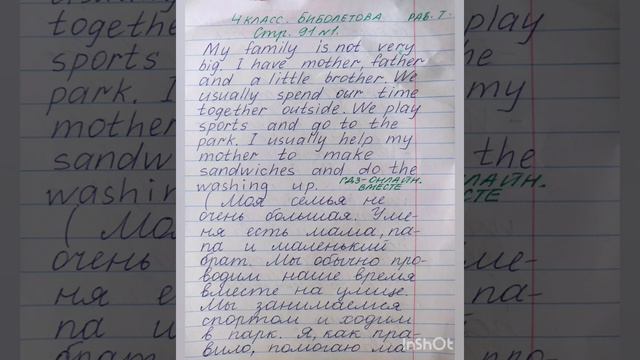 4 КЛАСС. БИБОЛЕТОВА РАБ. Т.
Стр. 91 №1.
My family is not very
big. I have mother, father
and a little brother. We
usually spend our time
together outside. We play
sports and go to the
park. I usually help my
mother to make
sandwiches and do the
washing up. ГДЗ-ОНЛАЙН.
ВМЕСТЕ
(Моя семья не
очень большая. У ме-
ня есть мама, па-
па и маленький
брат. Мы обычно про-
водим наше время
вместе на улице.
Мы занимаемся
спортом и ходим
в парк. Я, как пра-
вило, помогаю ма
InShot